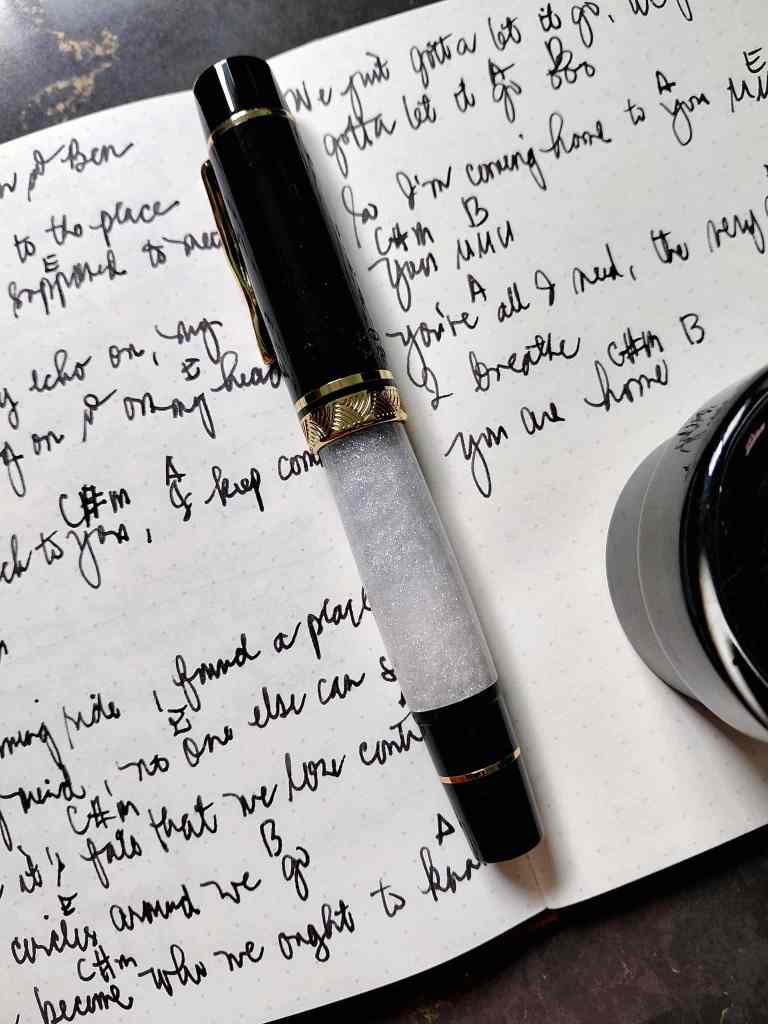 Ben
to the place
E
supposed to
echo on, my
E
on & on my head
C#m A
to you, I keep
ride, I found a place
E
mind, no one else can
C#m
it's fate that we lose
B A
circles around we go
E
C#m
become who we ought to
We just gotta let it go,
A B
gotta let it go ooo
A E
So I'm coming home to you uuu
C#m B
You uuu
A
you're all I need, the very
C#m B
I breathe
you are home